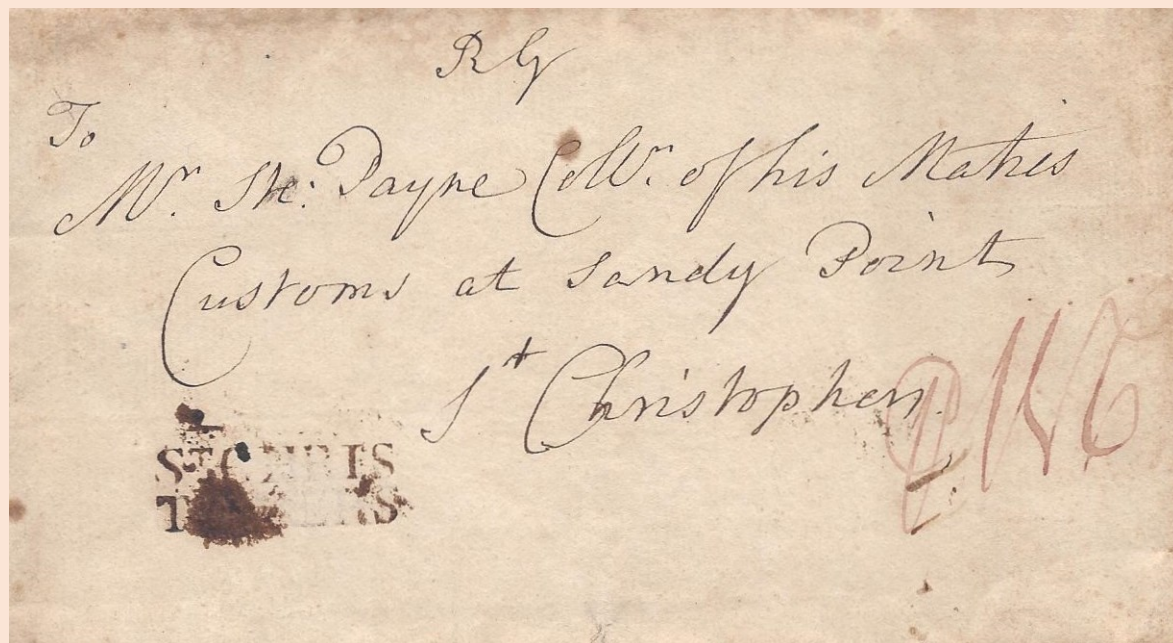 R G
To
Mr. Ste: Payne Collr. of his Maties
Customs at Sandy Point
St Christophers
ST CHRIS
TOPHERS